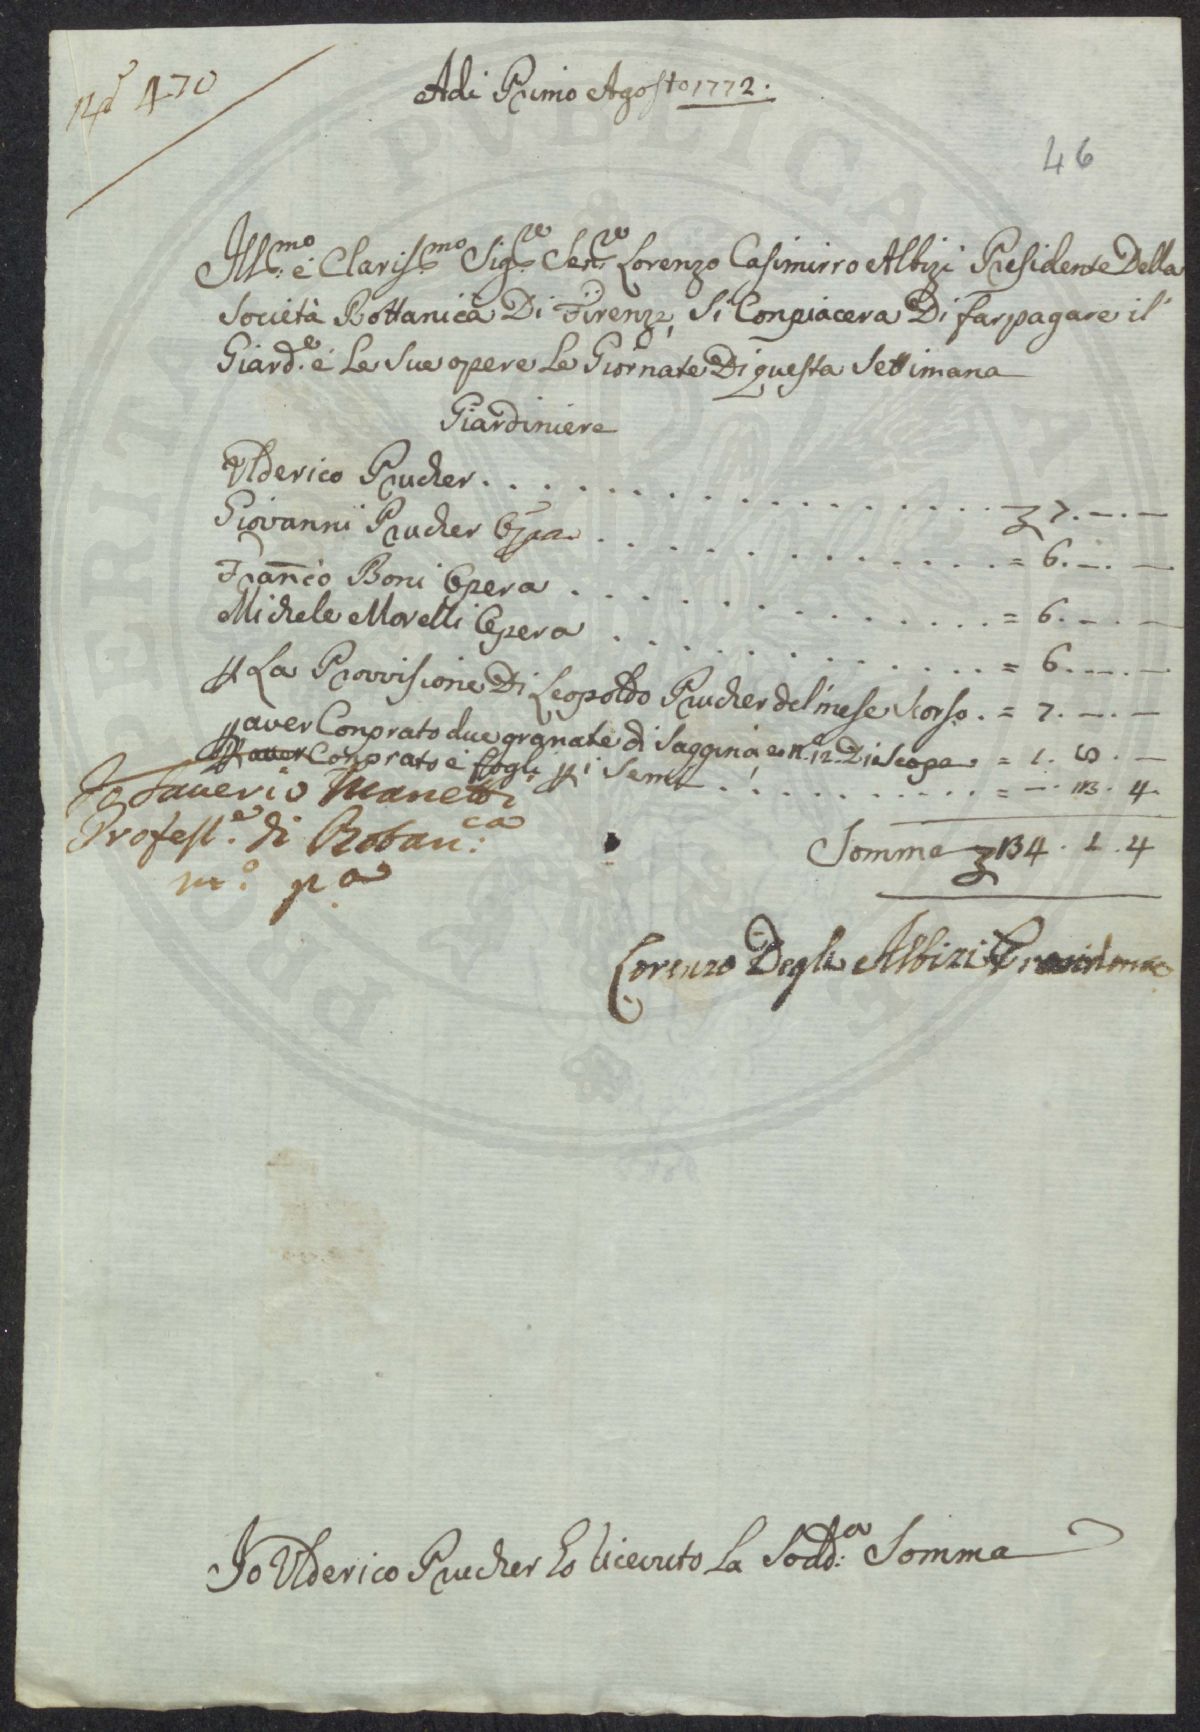 N.º 470
Adi Primo Agosto 1772.
46
Ill.mo e Claris.mo Sig.re Sen.re Lorenzo Casimirro Albizi Presidente Della
Società Bottanica Di Firenze, Si Conpiacera Di far pagare il
Giard.e é Le Sue opere Le Giornate Di questa Settimana
Giardiniere
Ulderico Prucher . . . . . . 7. — . —
Giovanni Prucher Opa . . . . . . = 6. — . —
Franco Boni Opera . . . . . . = 6. — . —
Michele Morelli Opera . . . . . . = 6. — . —
P La Provvisione Di Leopoldo Prucher del mese Scorso . = 7. — . —
P aver Conprato due granate di Saggina e n. 12 Di Scopa = 1. 8 . —
P aver Conprato i fogli P i Semi . . . . . . = — . 13. 4.
Io Saverio Manetti
Profess.e di Botan.ca
m.o p.a
Somma 34 . 1 . 4
Lorenzo Degli Albizi Presidente
PVBLICA
VERITAS
Io Ulderico Prucher ho ricevuto La Sodd.a Somma